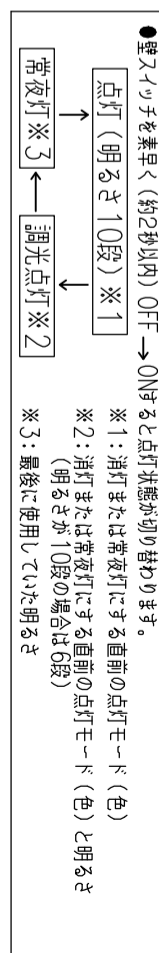 ●壁スイッチを素早く(約2秒以内)OFF→ONすると点灯状態が切り替わります。
点灯(明るさ10段)※1
調光点灯※2
常夜灯※3
※1:消灯または常夜灯にする直前の点灯モード(色)
※2:消灯または常夜灯にする直前の点灯モード(色)と明るさ
(明るさが10段の場合は6段)
※3:最後に使用していた明るさ